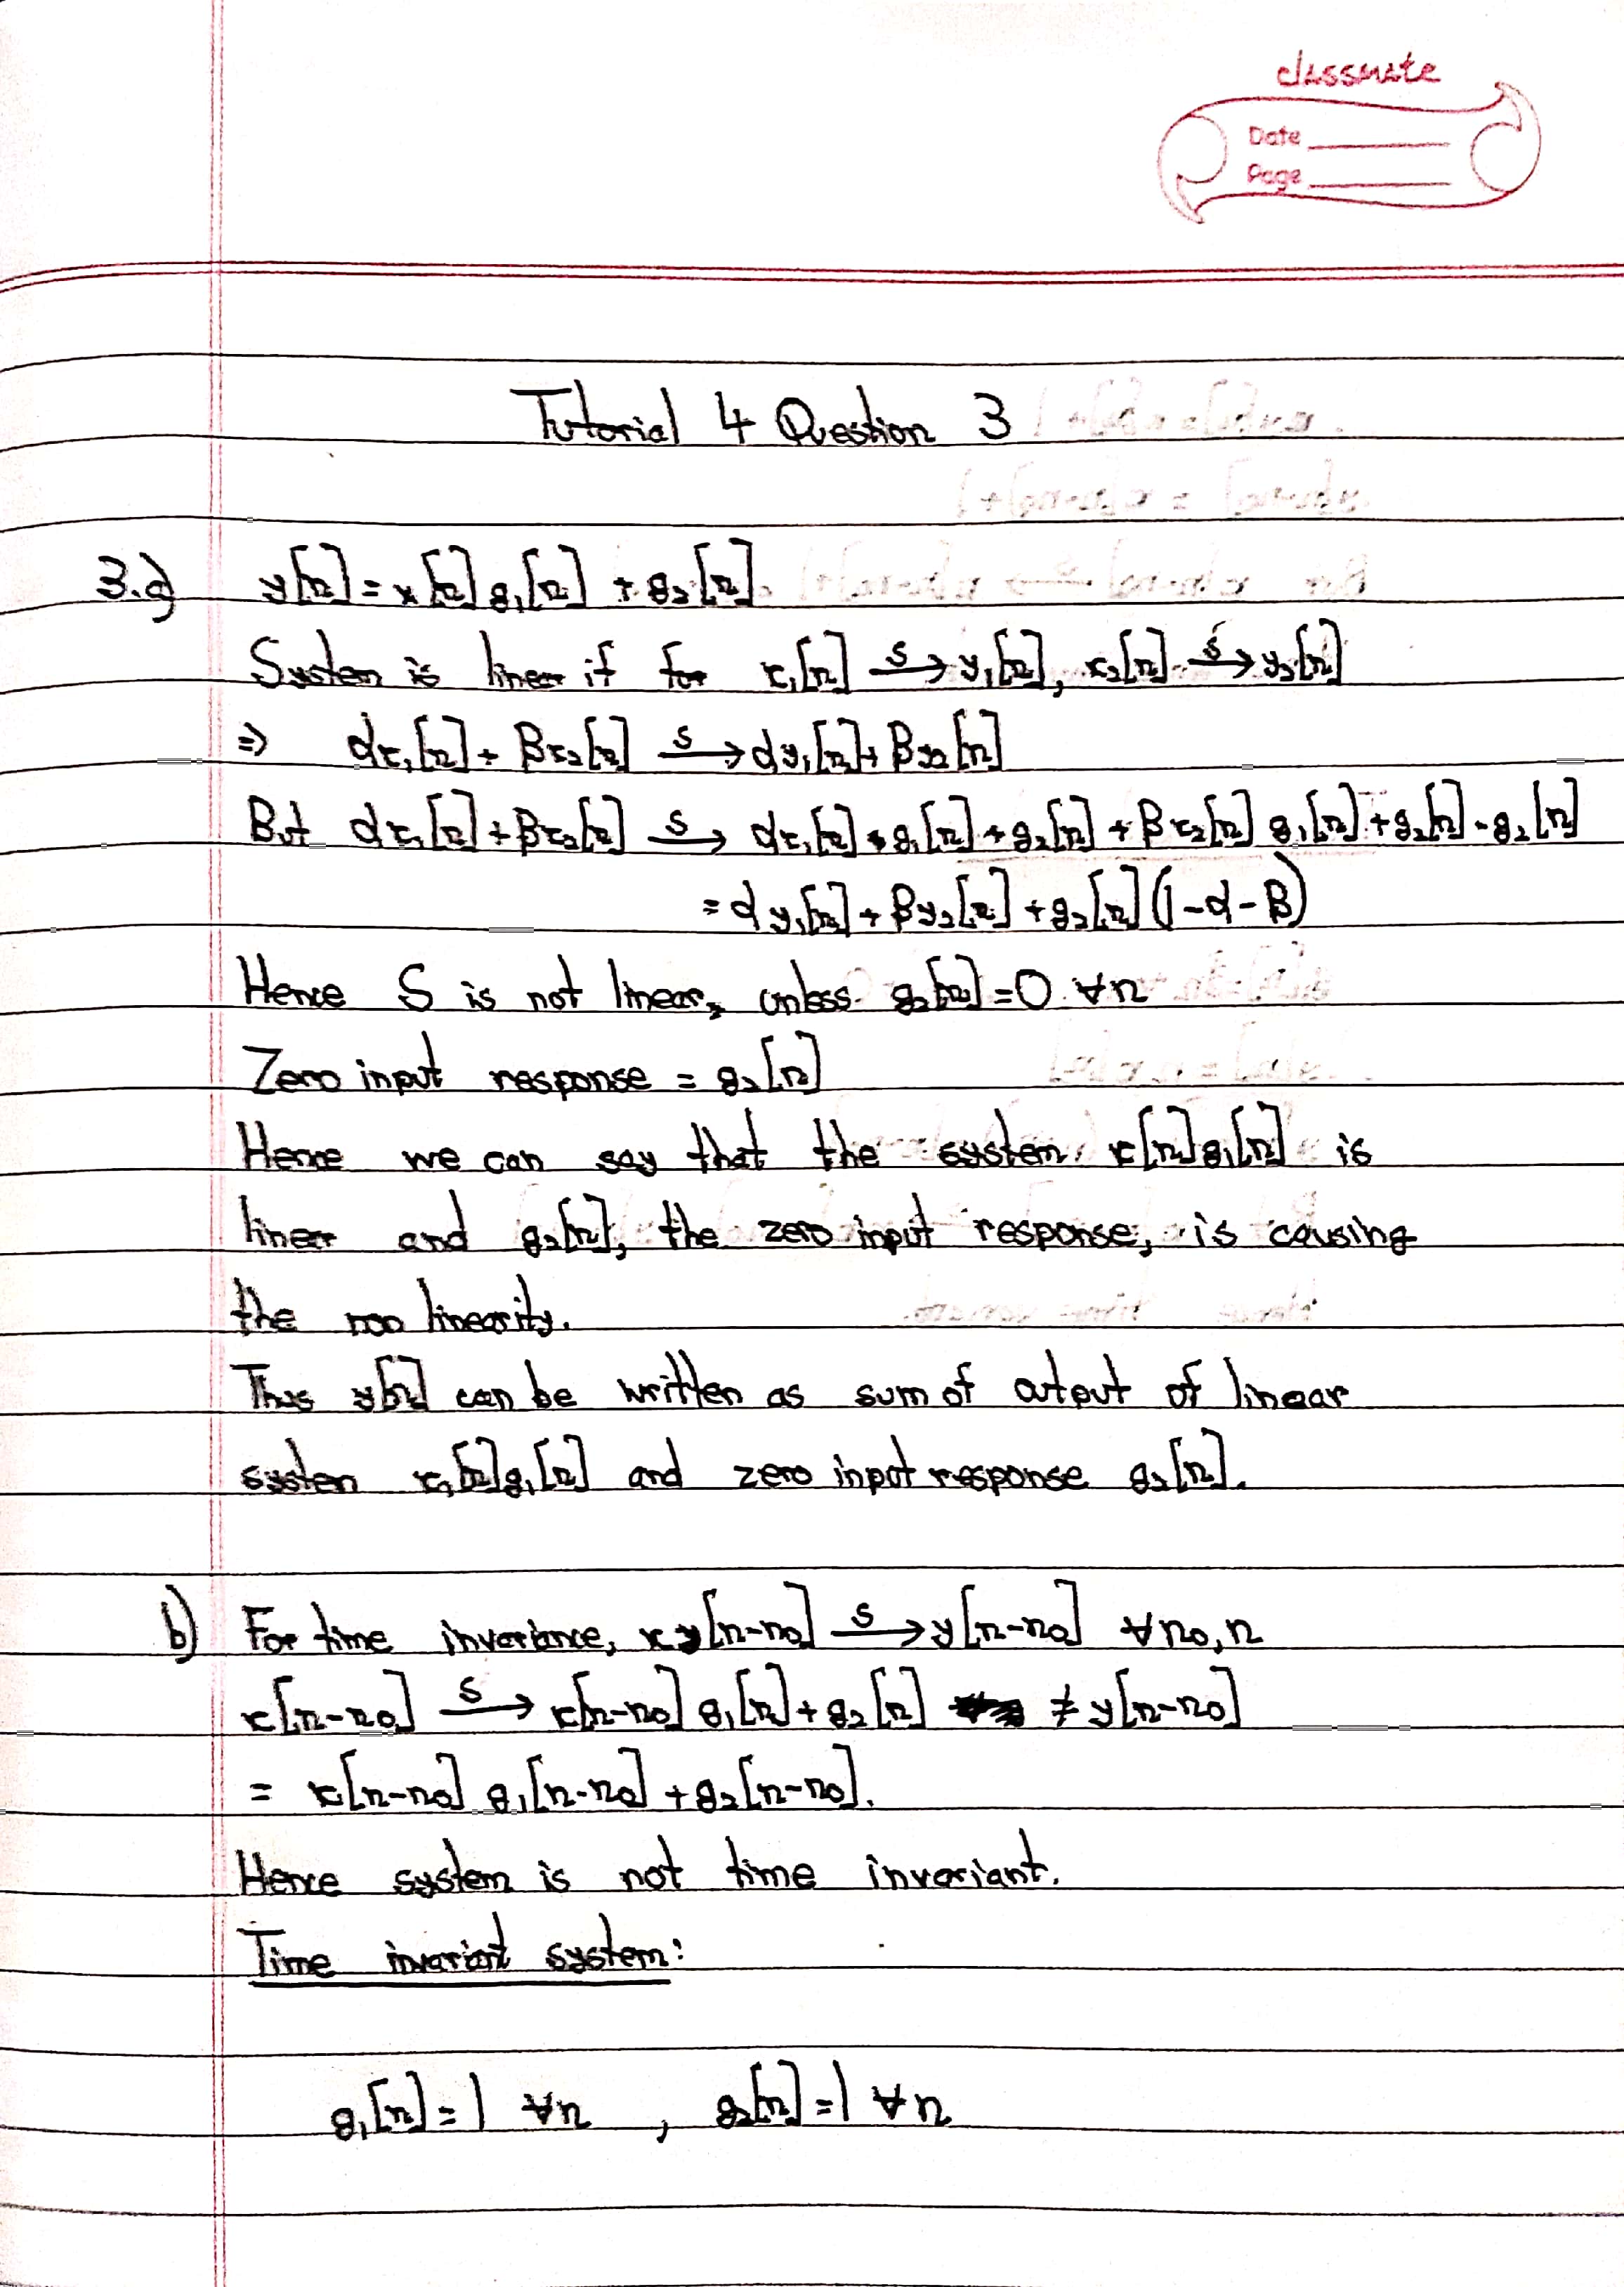 classmate
Date
Page
Tutorial 4 Question 3
3.a) y[n] = x[n] g₁[n] + g₂[n]
System is linear if for x₁[n] -S-> y₁[n], x₂[n] -S-> y₂[n]
⇒ αx₁[n] + βx₂[n] -S-> αy₁[n] + βy₂[n]
But αx₁[n] + βx₂[n] -S-> αx₁[n] g₁[n] + g₂[n] + βx₂[n] g₁[n] + g₂[n] - g₂[n]
= αy₁[n] + βy₂[n] + g₂[n] (1-α-β)
Hence S is not linear, unless g₂[n] = 0 ∀n
Zero input response = g₂[n]
Hence we can say that the system x[n]g₁[n] is
linear and g₂[n], the zero input response, is causing
the non linearity.
Thus y[n] can be written as sum of output of linear
system x₁[n]g₁[n] and zero input response g₂[n].
b) For time invariance, x[n-n₀] -S-> y[n-n₀] ∀n₀,n
x[n-n₀] -S-> x[n-n₀] g₁[n] + g₂[n] ≠ y[n-n₀]
= x[n-n₀] g₁[n-n₀] + g₂[n-n₀].
Hence system is not time invariant.
Time invariant system:
g₁[n] = 1 ∀n , g₂[n] = 1 ∀n